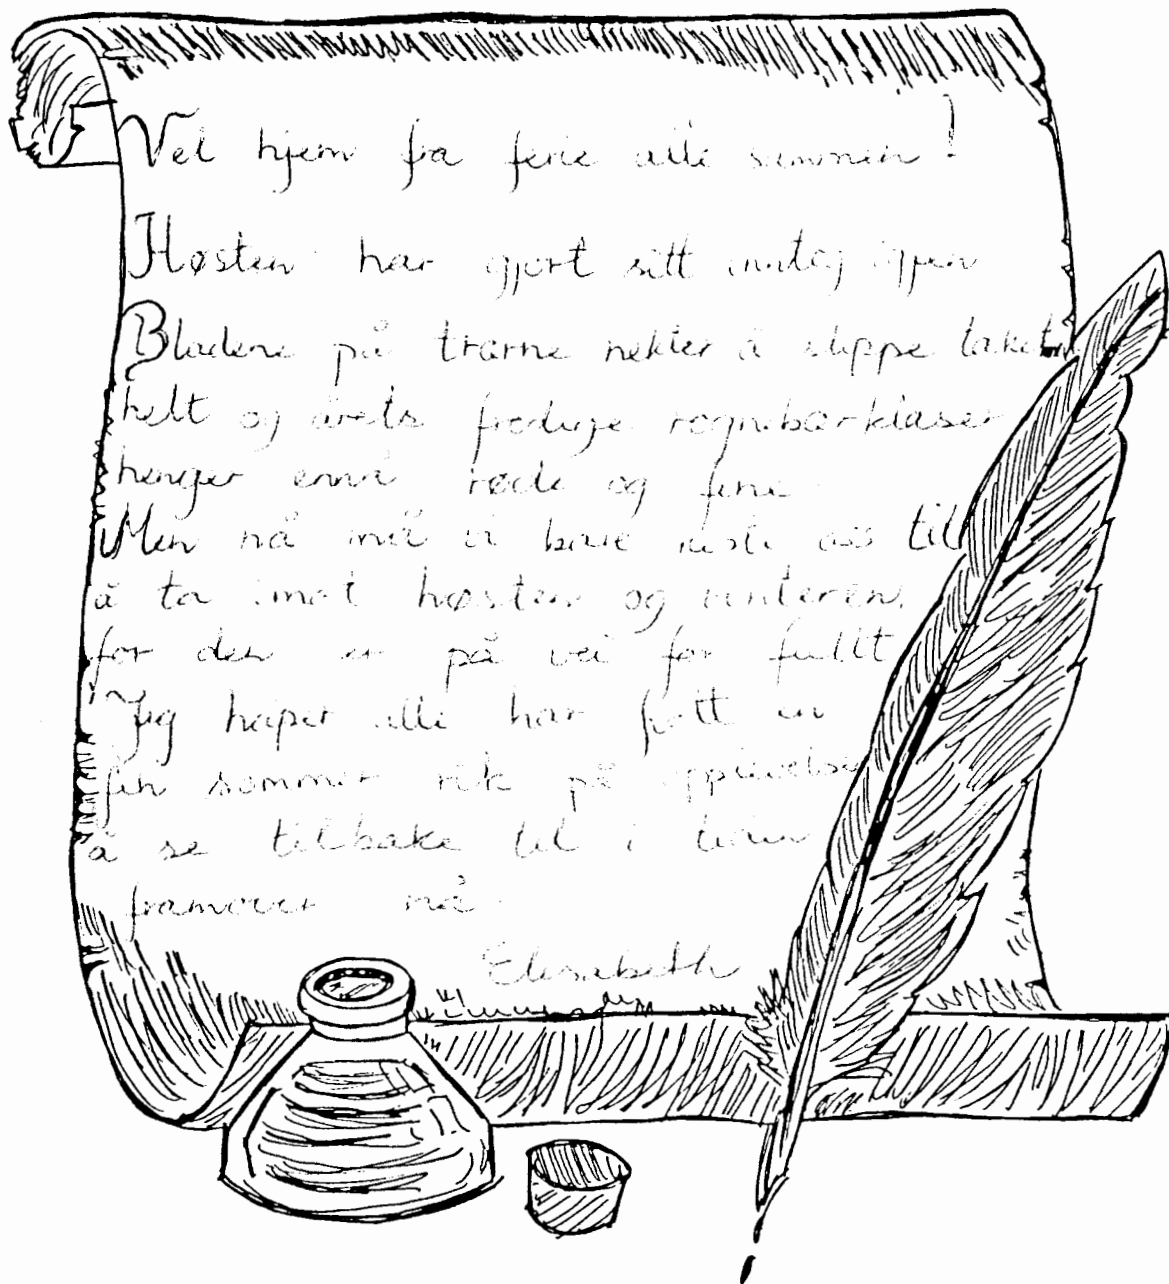 Vel hjem fra ferie alle sammen!
Høsten har gjort sitt inntog igjen
Bladene på trærne nekter å slippe taket
helt og årets frodige rognebærklaser
henger ennå røde og fine
Men nå må vi bare ruste oss til
å ta imot høsten og vinteren,
for den er på vei for fullt
Jeg håper alle har fått en
fin sommer rik på opplevelser
å se tilbake til i tiden
framover nå.
Elisabeth